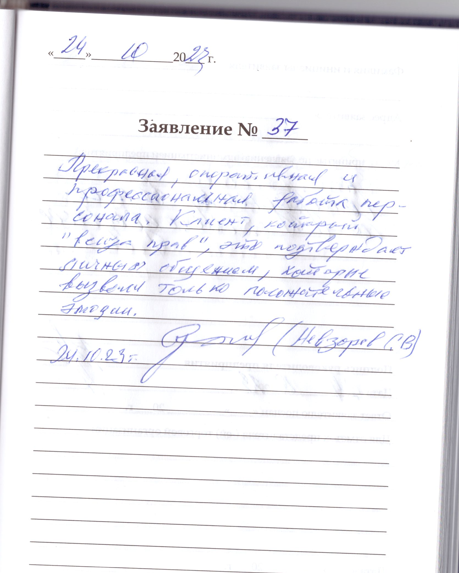 «24» 10 2023 г.
Заявление № 37
Прекрасная, оперативная и
профессиональная работа пер-
сонала. Клиент, который
"всегда прав", это подтверждает
личным общением, которые
вызвали только положительные
эмоции.
24.10.23 г. (Невзоров С.В)